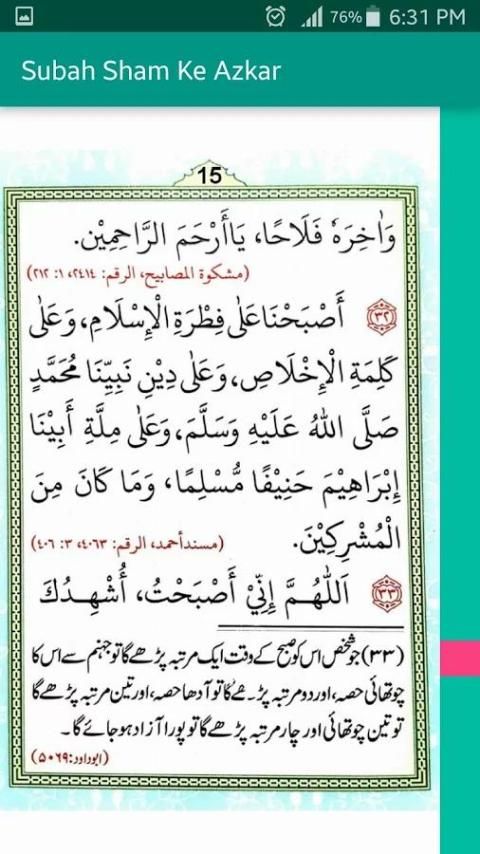 76% 6:31 PM
Subah Sham Ke Azkar
15
وَاٰخِرَهٗ فَلَاحًا، يَاأَرْحَمَ الرَّاحِمِيْن.
(مشكوة المصابيح، الرقم: ٢٤١٤، ١: ٢١٢)
٣٢ أَصْبَحْنَا عَلٰى فِطْرَةِ الْإِسْلَامِ، وَعَلٰى
كَلِمَةِ الْإِخْلَاصِ، وَعَلٰى دِيْنِ نَبِيِّنَا مُحَمَّدٍ
صَلَّى اللّٰهُ عَلَيْهِ وَسَلَّمَ، وَعَلٰى مِلَّةِ أَبِيْنَا
إِبْرَاهِيْمَ حَنِيْفًا مُّسْلِمًا، وَمَا كَانَ مِنَ
الْمُشْرِكِيْنَ.
(مسند أحمد، الرقم: ٤٠٦٣، ٣: ٤٠٦)
٣٣ اَللّٰهُمَّ إِنِّيْ أَصْبَحْتُ، أُشْهِدُكَ
(٣٣) جو شخص اس کو صبح کے وقت ایک مرتبہ پڑھے گا تو جہنم سے اس کا
چوتھائی حصہ، اور دو مرتبہ پڑھے گا تو آدھا حصہ، اور تین مرتبہ پڑھے گا
تو تین چوتھائی اور چار مرتبہ پڑھے گا تو پورا آزاد ہو جائے گا۔
(ابوداود: ۵۰۶۹)